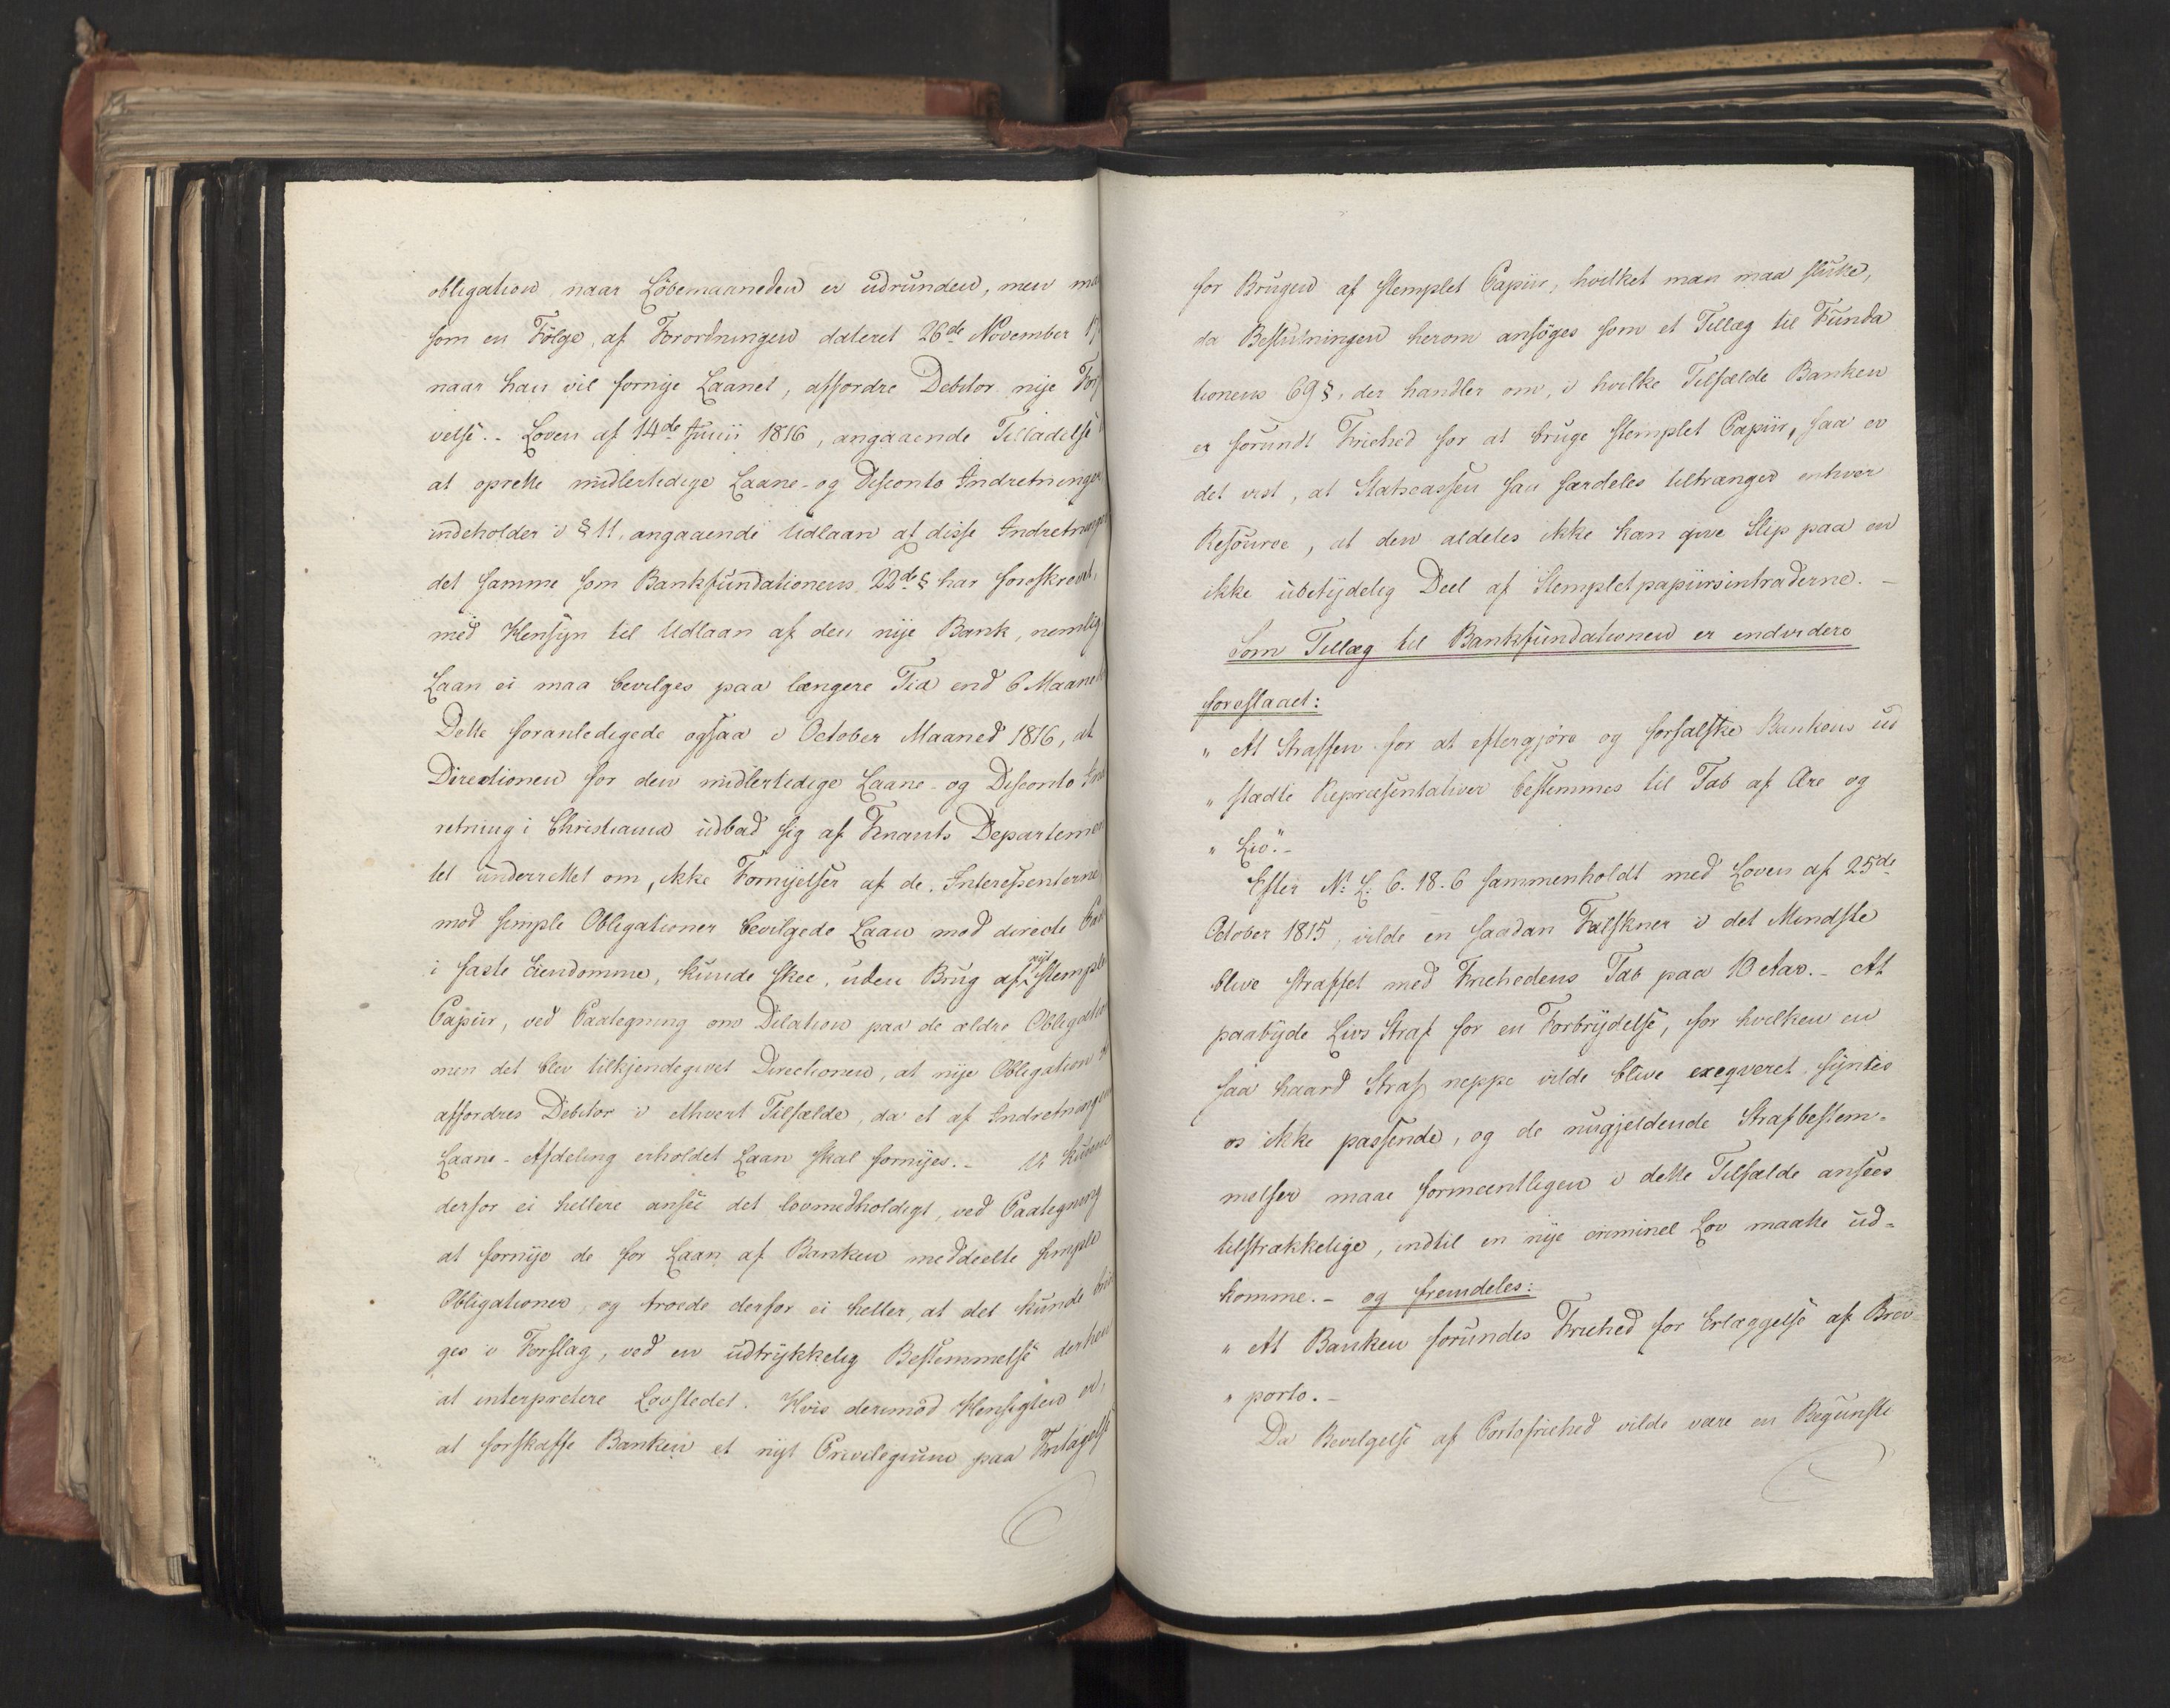 obligation naar Löbemaaneden er udrunden, men
som en Fölge af Forordningen dateret 26de November
naar han vil fornÿe Laanet, affordre Debitor nÿe
velse. Loven af 14de Junii 1816, angaaende Tilladelse
at oprette midlertidige Laane- og Disconto Indretninger
indeholder i § 11, angaaende Udlaan af disse Indretninger
det samme som Bankfundationens 22de § har foreskrevet,
med Hensÿn til Udlaan af den nÿe Bank, nemlig
Laan ei maa bevilges paa længere Tid end 6 Maaneder
Dette foranledigede ogsaa i October Maaned 1816, at
Directionen for den midlertidige Laane- og Disconto Ind
retning i Christiania udbad sig af Finants Departemen
tet underrettet om, ikke Fornÿelser af de Interessenterne
mod simple Obligationer bevilgede Laan mod directe
i faste Eiendomme, kunde skee, uden Brug af nÿt stemplet
Papiir, ved Paategning om Dilation paa de ældre Obligation
men det blev tilkjendegivet Directionen, at nÿe Obligation
affordres Debitor i ethvert Tilfælde, da et af Indretningens
Laane-Afdeling erholdet Laan skal fornÿes. - Vi kunne
derfor ei hellere ansee det lovmedholdigt, ved Paategning
at fornÿe de for Laan af Banken meddeelte simple
Obligationer, og troede derfor ei heller, at det kunde brin
ges i Forslag, ved en udtrÿkkelig Bestemmelse derhen
at interpretere Lovstedet. Hvis derimod Hensigten er,
at forskaffe Banken et nÿt Privilegium paa Fritagelse
for Brugen af stemplet Papiir, hvilket man maa slutte,
da Beslutningen herom ansöges som et Tillæg til Funda
tionens 69 §, der handler om, i hvilke Tilfælde Banken
er forundt Friehed for at bruge stemplet Papiir, saa er
det vist, at Statscassen saa særdeles tiltrænger enhver
Resource, at den aldeles ikke kan give Slip paa en
ikke ubetÿdelig Deel af Stempletpapiirsintraderne. -
Som Tillæg til Bankfundationen er endvidere
foreslaaet:
" At Straffen for at eftergjöre og forfalske Bankens ud
" stædte Repræsentativer bestemmes til Tab af Ære og
" Liv." -
Efter N: L: 6. 18. 6 sammenholdt med Loven af 25de
October 1815, vilde en saadan Falskner i det Mindste
blive straffet med Friehedens Tab paa 10 Aar. - At
paabÿde Livs Straf for en Forbrÿdelse, for hvilken en
saa haard Straf neppe vilde blive exeqveret sÿntes
os ikke passende, og de nugjeldende Strafbestem-
melser maae formeentligen i dette Tilfælde ansees
tilstrækkelige, indtil en nÿe criminel Lov maatte ud-
komme. - og fremdeles:
" At Banken forundes Friehed for Erlæggelse af Brev
" porto. -
Da Bevilgelse af Portofriehed vilde være en Begunsti